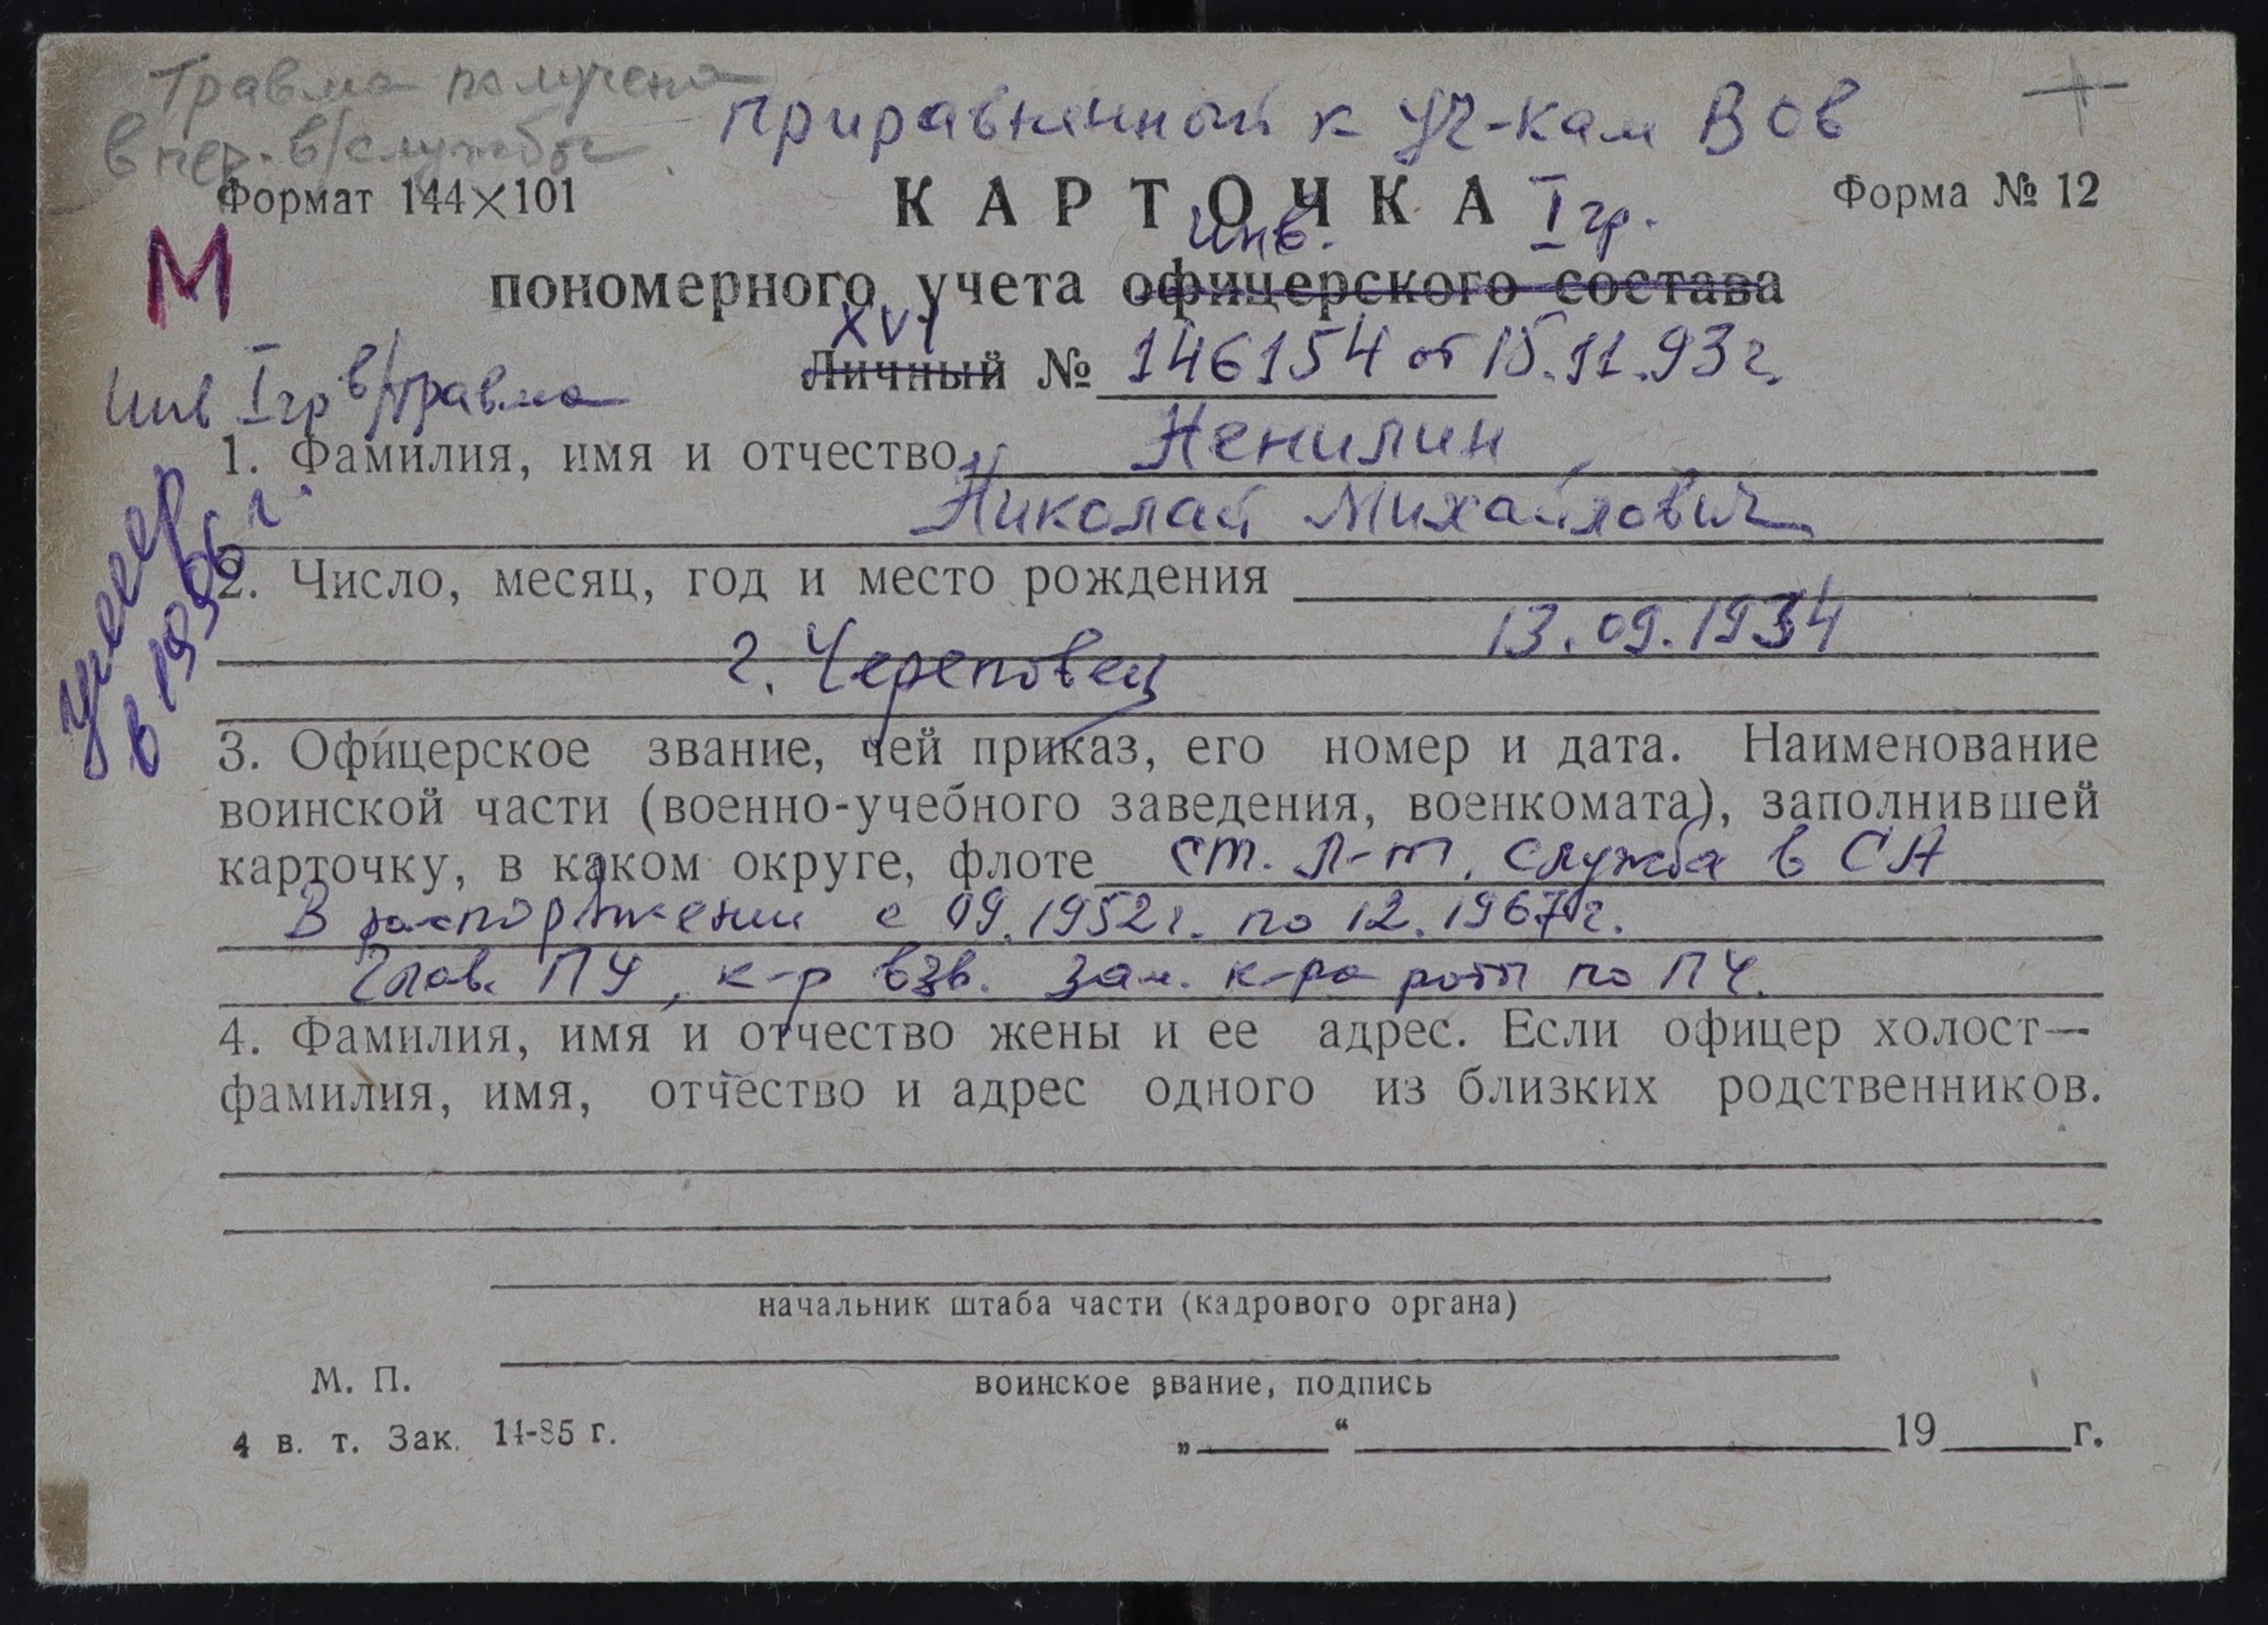 Травма получена
в пер. в/службы
Приравненный к уч-кам ВОВ
Формат 144×101
КАРТОЧКА
I гр.
Форма № 12
М
инв.
пономерного учета офицерского состава
XVI
Личный № 146154 от 15.11.93 г.
Инв I гр в/травма
1. Фамилия, имя и отчество Ненилин
Николай Михайлович
умер
в г.
2. Число, месяц, год и место рождения
13.09.1934
г. Череповец
3. Офицерское звание, чей приказ, его номер и дата. Наименование
воинской части (военно-учебного заведения, военкомата), заполнившей
карточку, в каком округе, флоте ст. л-т, служба в СА
В распоряжении с 09.1952 г. по 12.1967 г.
Глав. ПУ, к-р взв. зам. к-ра роты по ПЧ.
4. Фамилия, имя и отчество жены и ее адрес. Если офицер холост—
фамилия, имя, отчество и адрес одного из близких родственников.
начальник штаба части (кадрового органа)
М. П.
воинское звание, подпись
4 в. т. Зак. 14-85 г.
„ “ 19 г.